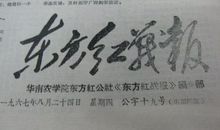 东方红战报
华南农学院东方红公社《东方红战报》编
一九六七年八月二十四日 星期四 公字十九号